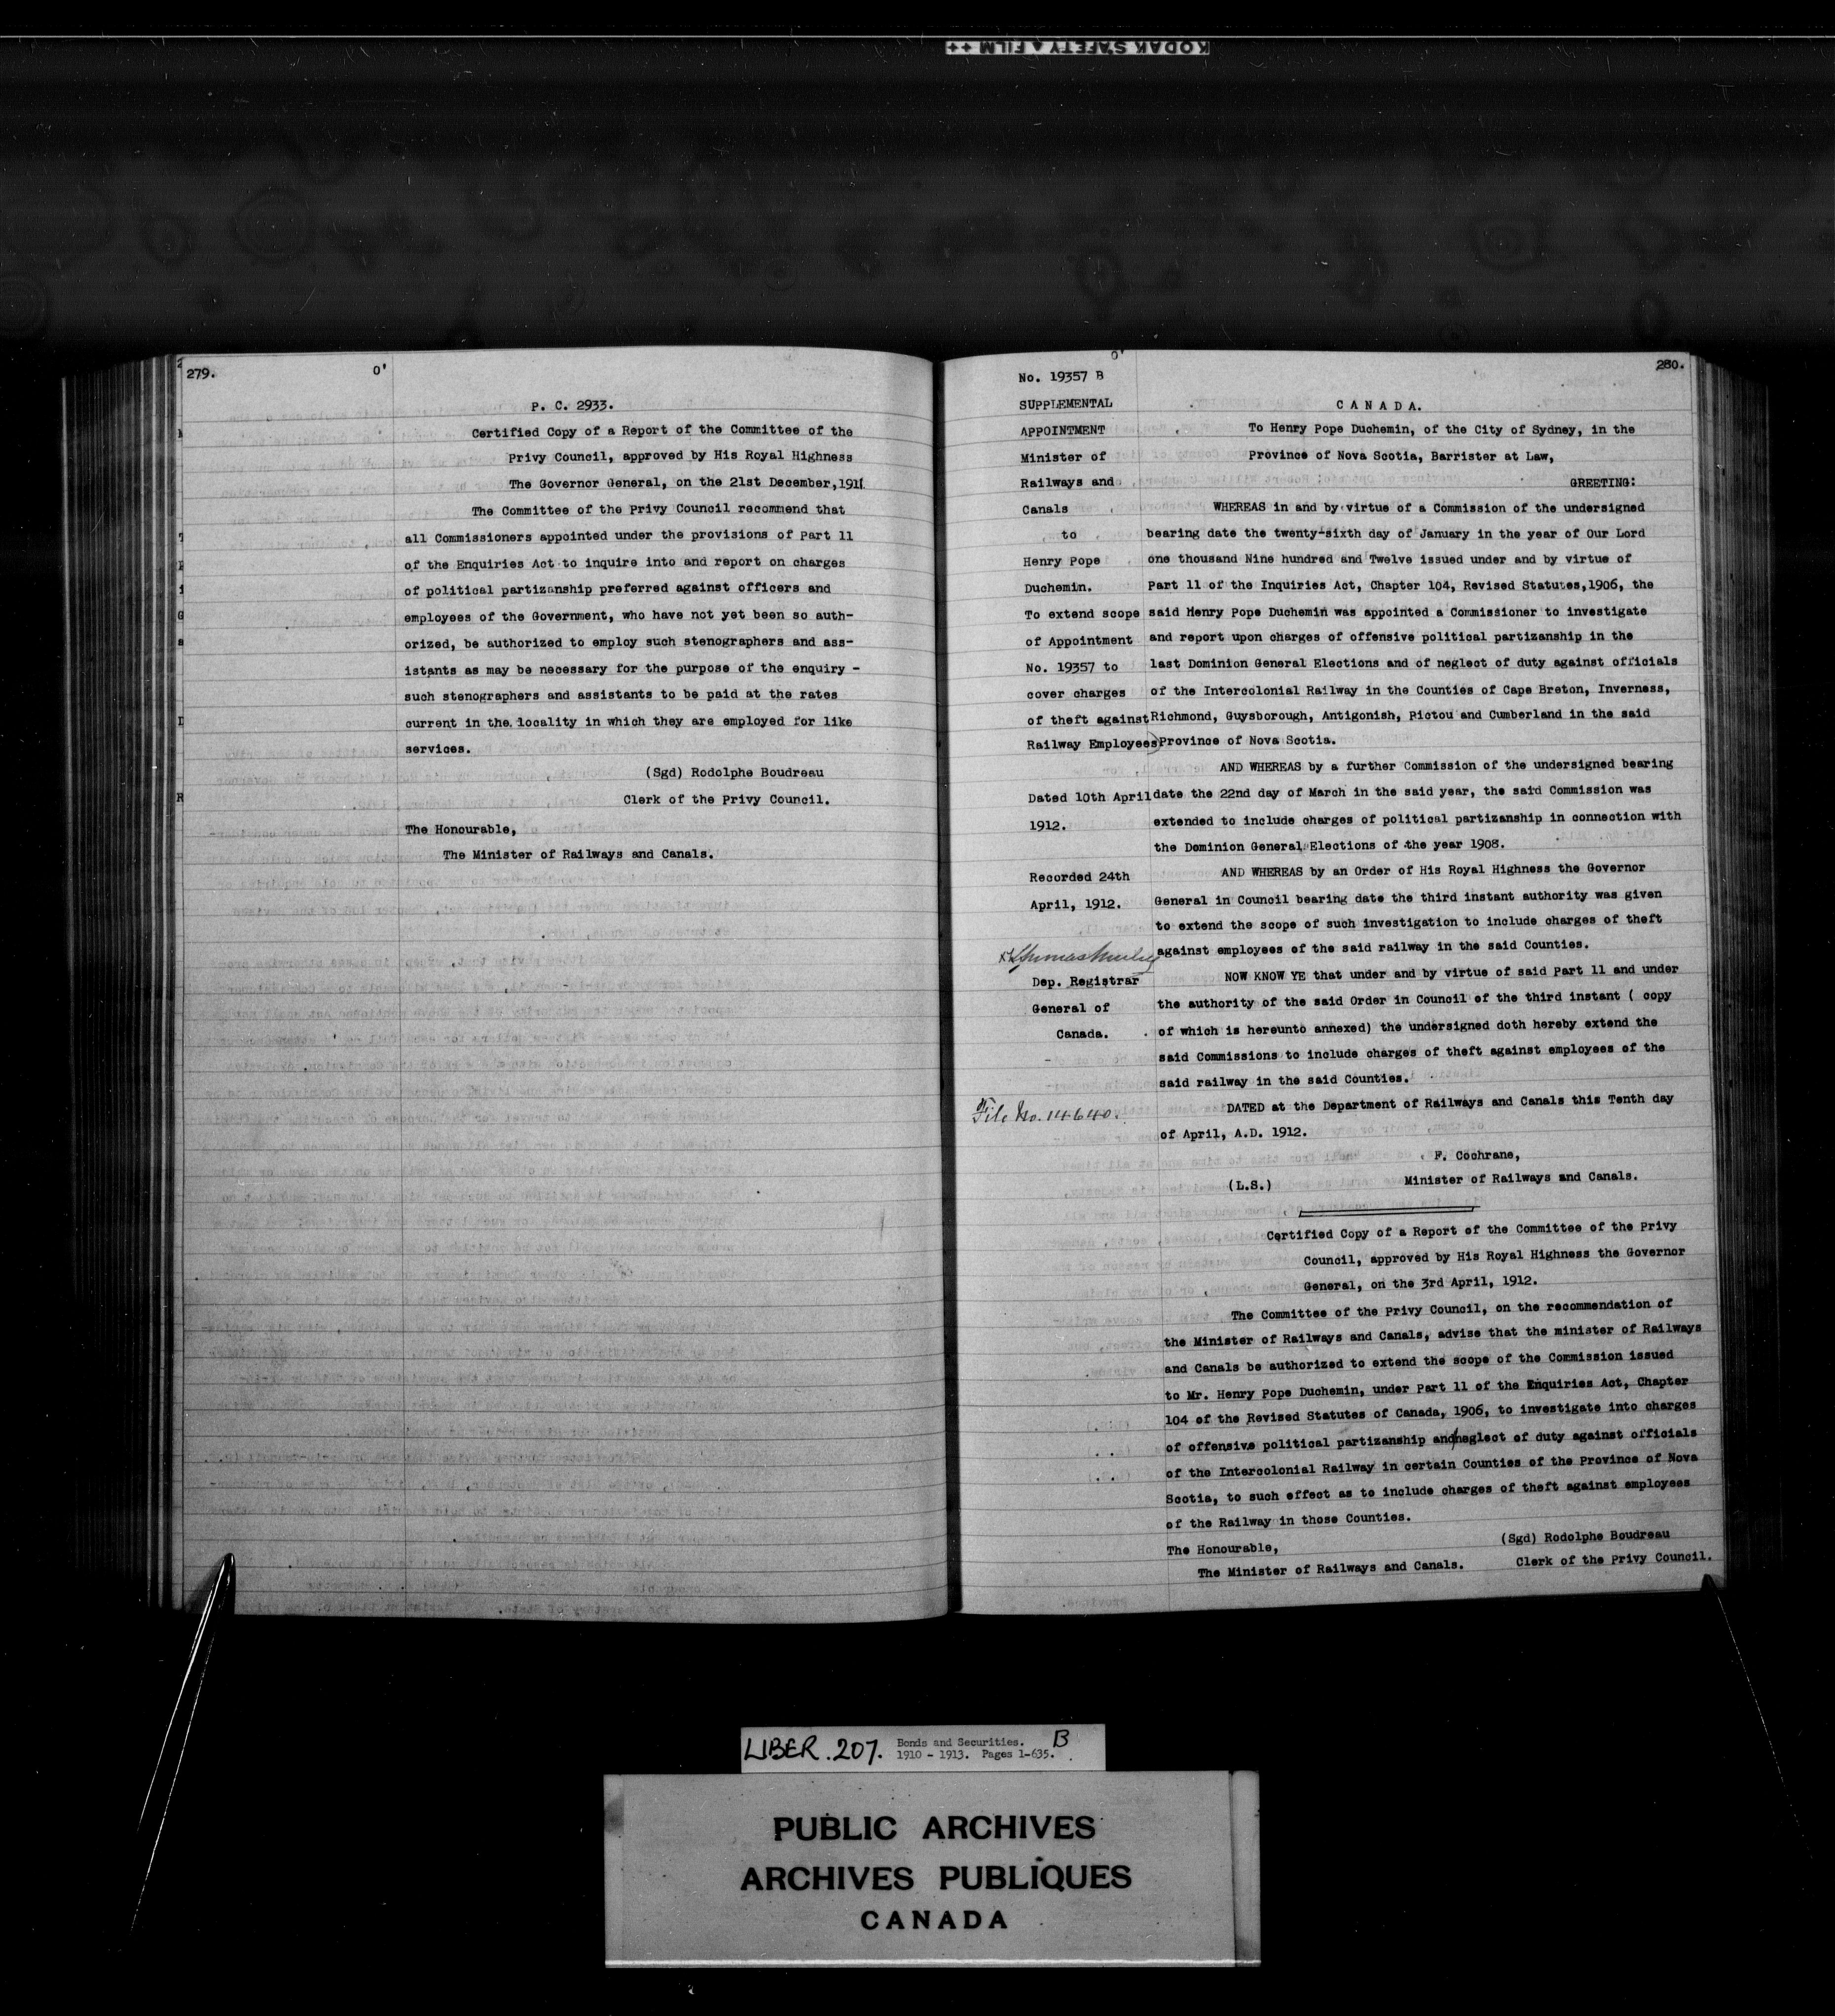 KODAK SAFETY ▲ FILM ++
279.
0'
P. C. 2933.
Certified Copy of a Report of the Committee of the
Privy Council, approved by His Royal Highness
The Governor General, on the 21st December,1911.
The Committee of the Privy Council recommend that
all Commissioners appointed under the provisions of Part 11
of the Enquiries Act to inquire into and report on charges
of political partizanship preferred against officers and
employees of the Government, who have not yet been so auth-
orized, be authorized to employ such stenographers and ass-
istants as may be necessary for the purpose of the enquiry -
such stenographers and assistants to be paid at the rates
current in the locality in which they are employed for like
services.
(Sgd) Rodolphe Boudreau
Clerk of the Privy Council.
The Honourable,
The Minister of Railways and Canals.
0'
280.
No. 19357 B
SUPPLEMENTAL
APPOINTMENT
Minister of
Railways and
Canals
to
Henry Pope
Duchemin.
To extend scope
of Appointment
No. 19357 to
cover charges
of theft against
Railway Employees)
Dated 10th April
1912.
Recorded 24th
April, 1912.
Dep. Registrar
General of
Canada.
File No. 14640.
C A N A D A.
To Henry Pope Duchemin, of the City of Sydney, in the
Province of Nova Scotia, Barrister at Law,
GREETING:
WHEREAS in and by virtue of a Commission of the undersigned
bearing date the twenty-sixth day of January in the year of Our Lord
one thousand Nine hundred and Twelve issued under and by virtue of
Part 11 of the Inquiries Act, Chapter 104, Revised Statutes,1906, the
said Henry Pope Duchemin was appointed a Commissioner to investigate
and report upon charges of offensive political partizanship in the
last Dominion General Elections and of neglect of duty against officials
of the Intercolonial Railway in the Counties of Cape Breton, Inverness,
Richmond, Guysborough, Antigonish, Pictou and Cumberland in the said
Province of Nova Scotia.
AND WHEREAS by a further Commission of the undersigned bearing
date the 22nd day of March in the said year, the said Commission was
extended to include charges of political partizanship in connection with
the Dominion General Elections of the year 1908.
AND WHEREAS by an Order of His Royal Highness the Governor
General in Council bearing date the third instant authority was given
to extend the scope of such investigation to include charges of theft
against employees of the said railway in the said Counties.
NOW KNOW YE that under and by virtue of said Part 11 and under
the authority of the said Order in Council of the third instant ( copy
of which is hereunto annexed) the undersigned doth hereby extend the
said Commissions to include charges of theft against employees of the
said railway in the said Counties.
DATED at the Department of Railways and Canals this Tenth day
of April, A.D. 1912.
F. Cochrane,
(L.S.) Minister of Railways and Canals.
Certified Copy of a Report of the Committee of the Privy
Council, approved by His Royal Highness the Governor
General, on the 3rd April, 1912.
The Committee of the Privy Council, on the recommendation of
the Minister of Railways and Canals, advise that the minister of Railways
and Canals be authorized to extend the scope of the Commission issued
to Mr. Henry Pope Duchemin, under Part 11 of the Enquiries Act, Chapter
104 of the Revised Statutes of Canada, 1906, to investigate into charges
of offensive political partizanship and/neglect of duty against officials
of the Intercolonial Railway in certain Counties of the Province of Nova
Scotia, to such effect as to include charges of theft against employees
of the Railway in those Counties.
The Honourable, (Sgd) Rodolphe Boudreau
The Minister of Railways and Canals. Clerk of the Privy Council.
LIBER. 207. Bonds and Securities. B
1910 - 1913. Pages 1-635.
PUBLIC ARCHIVES
ARCHIVES PUBLIQUES
CANADA